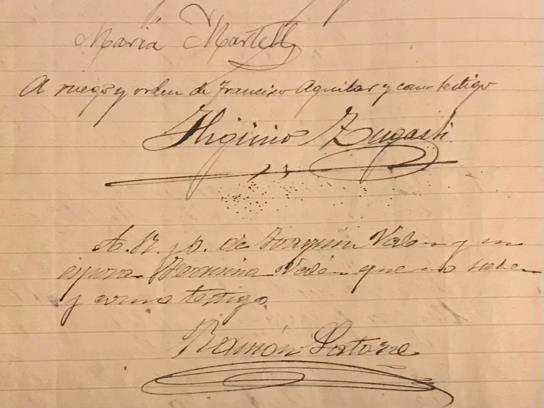 María Martell
A ruego y orden de Francisco Aguilar y como testigo
Higinio Zugasti
A R. y O. de Joaquín Valen y su
esposa Valén que no saben
y como testigo
Ramón Latorre